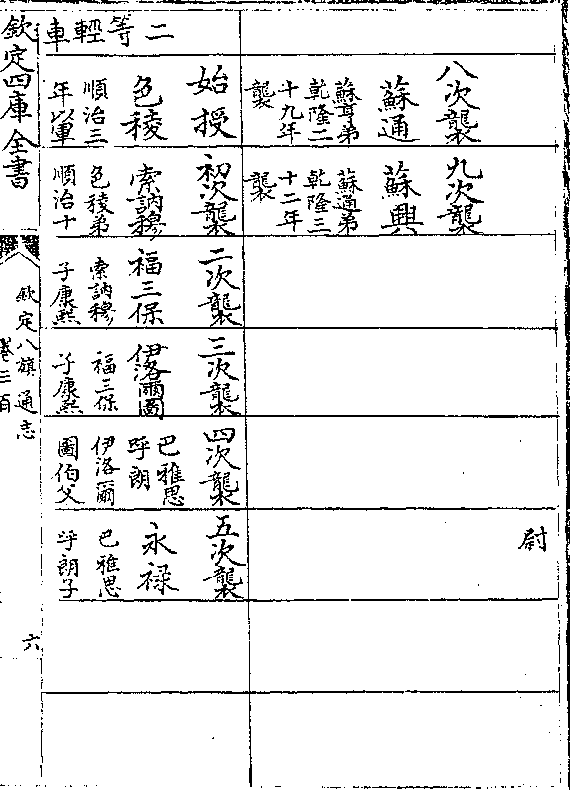 尉
八次襲
蘇通
乾隆二
十九年
襲
九次襲
蘇興
蘇通弟
乾隆三
十二年
襲
二等輕車
始授
色稜
順治三
年以軍
初次襲
索訥穆
色稜弟
順治十
二次襲
福三保
索訥穆
子康熙
三次襲
伊洛爾圖
福三保
子康熙
四次襲
巴雅思
呼朗
伊洛爾
圖伯父
五次襲
永禄
巴雅思
呼朗子
欽定四庫全書
欽定八旗通志
六